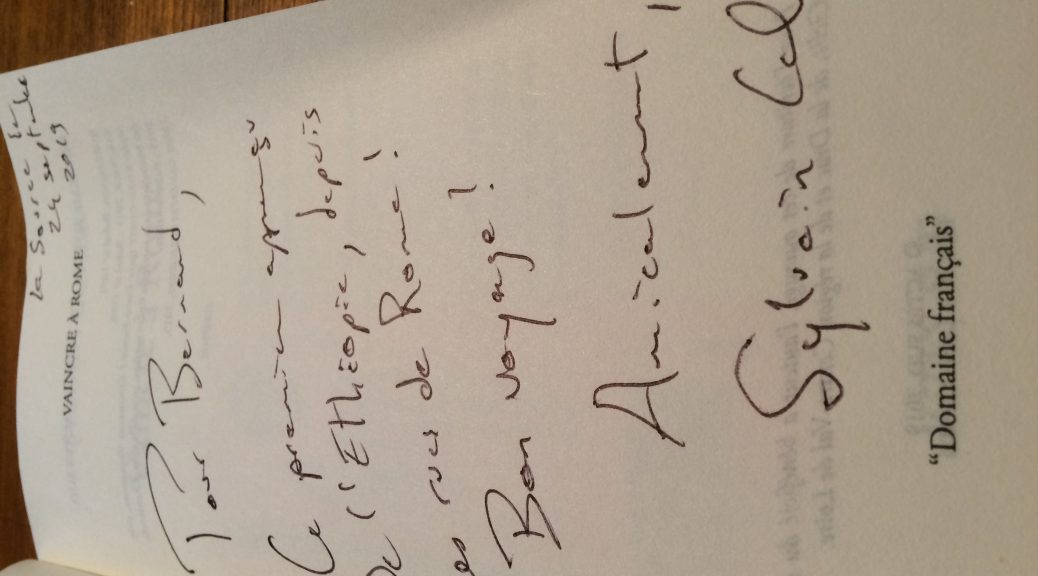 la Source le
24 septembre
2019
VAINCRE À ROME
Pour Bernard,
Ce premier aperçu
De l'Ethiopie, depuis
es rues de Rome!
Bon voyage!
Amicalement,
Sylvain
“Domaine français”